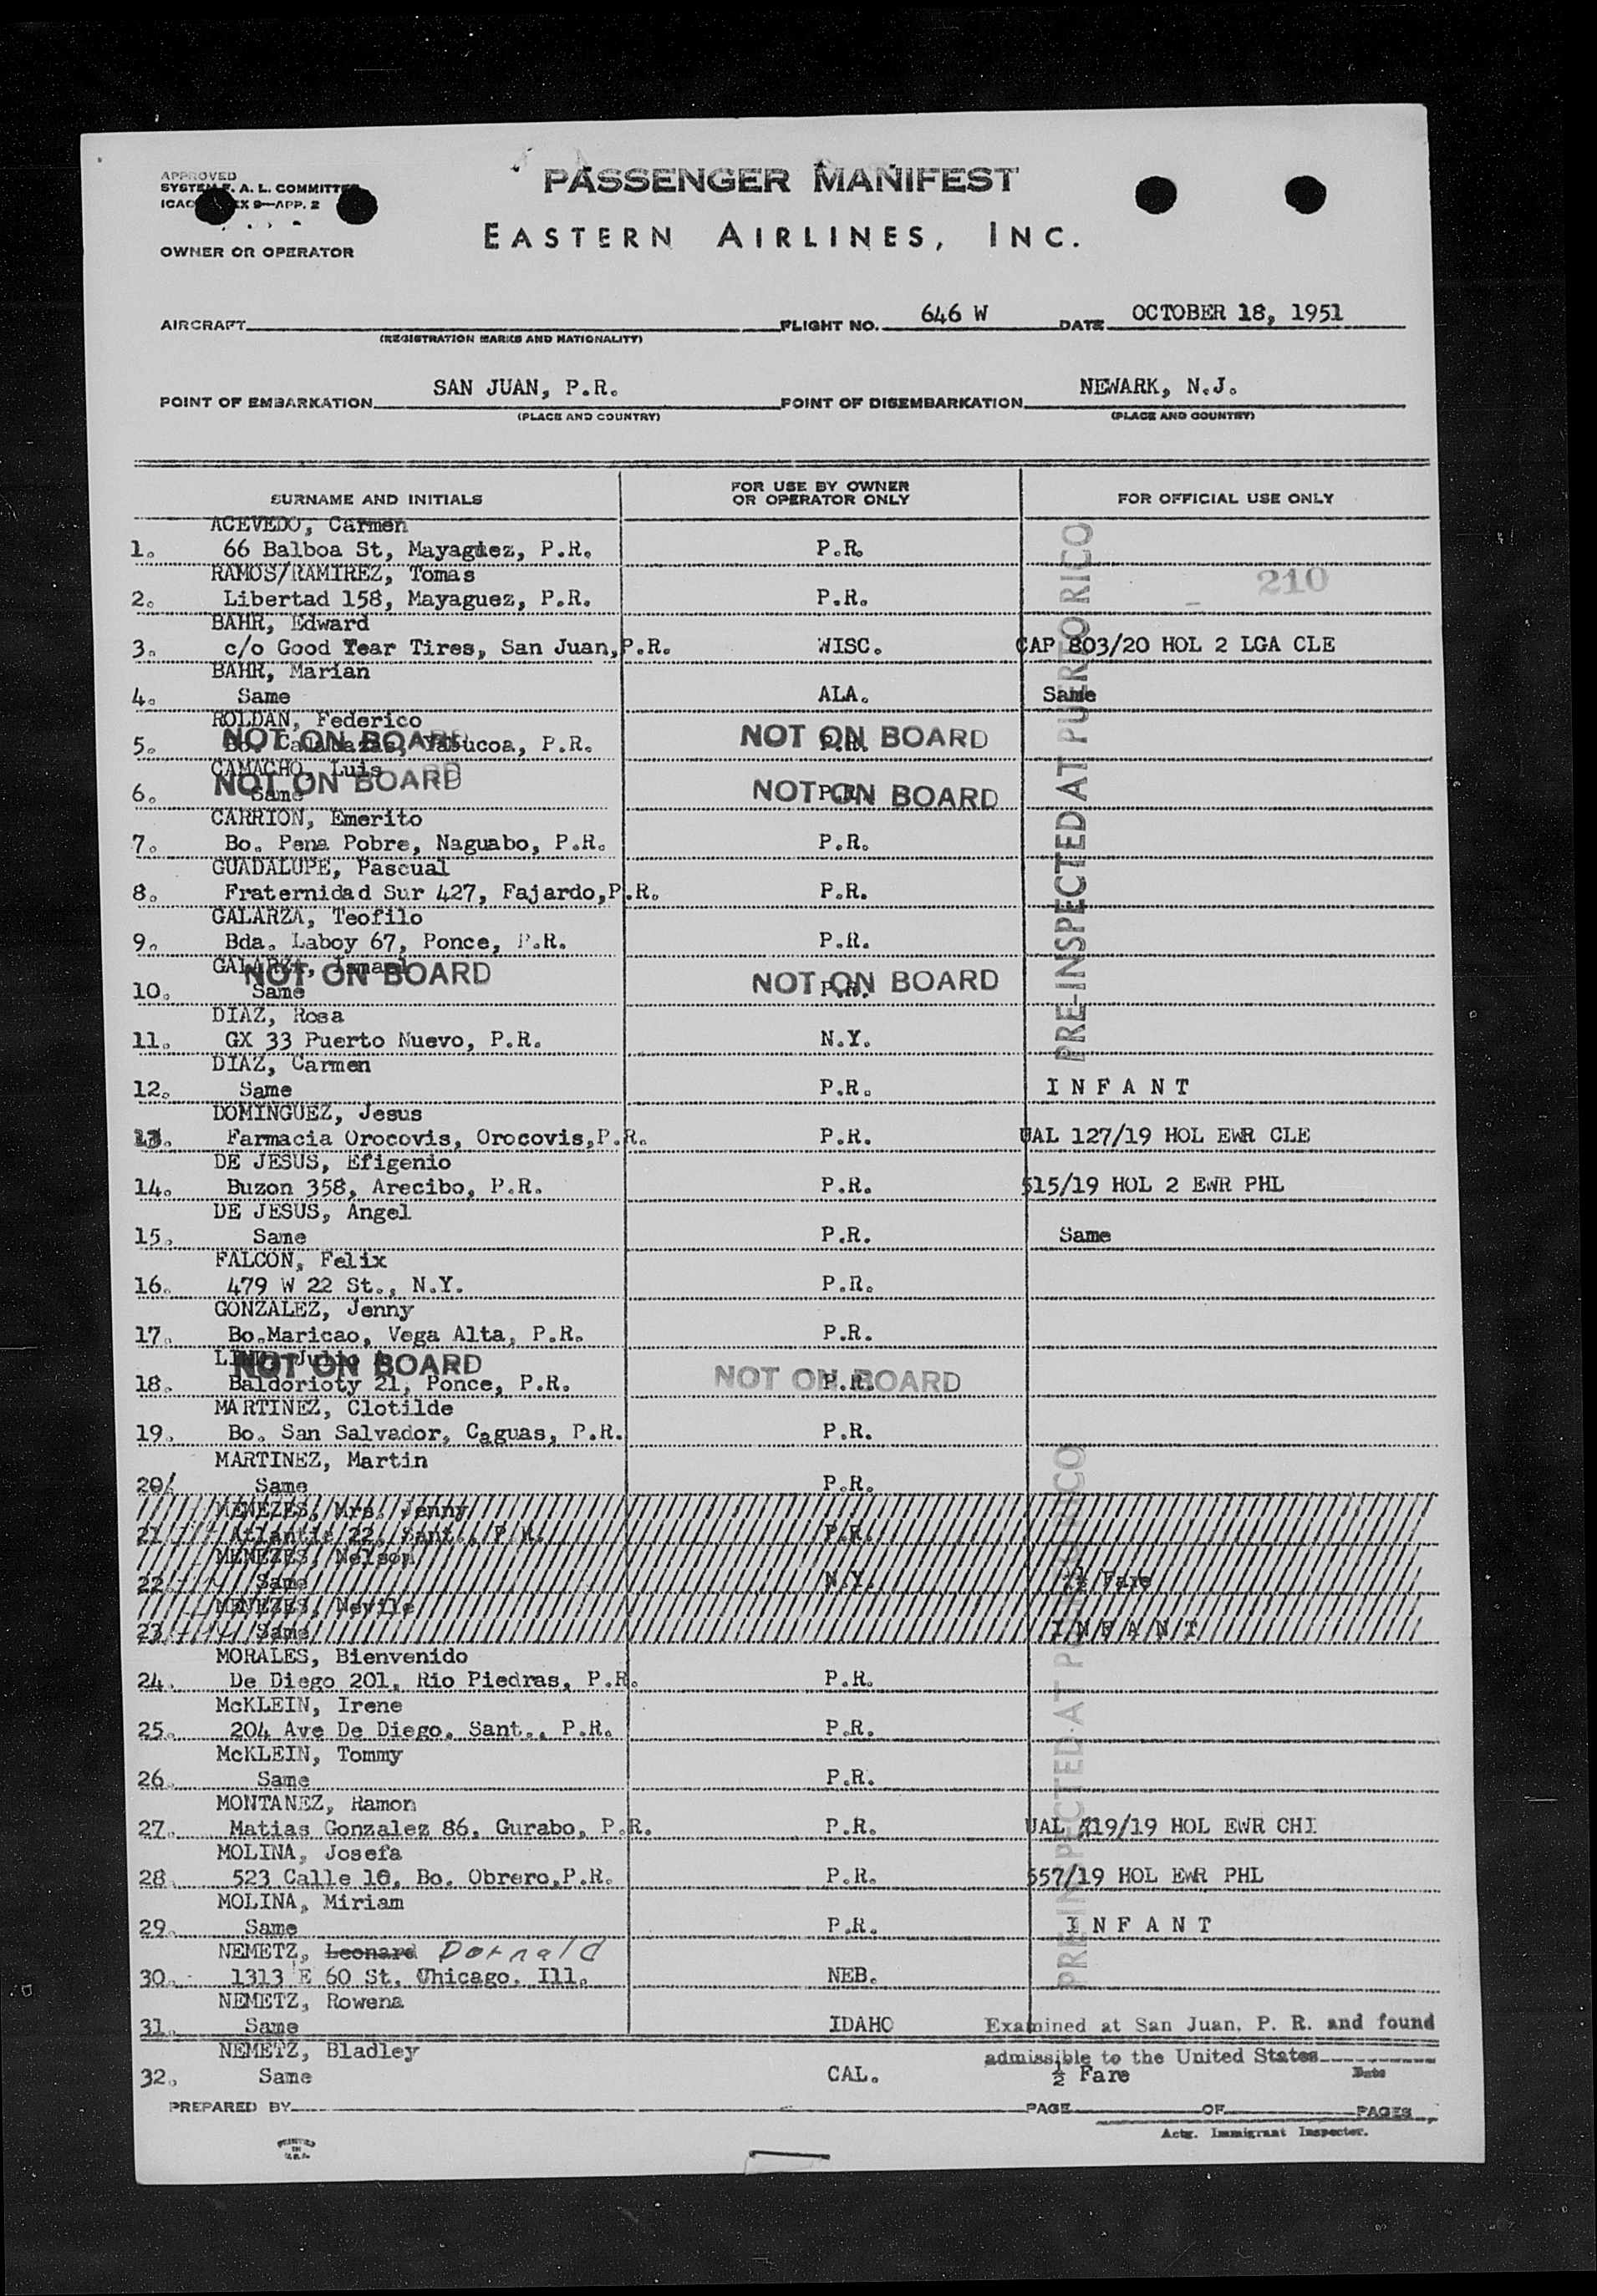 APPROVED
SYSTEM F. A. L. COMMITTEE
ICAO EX 9—APP. 2
OWNER OR OPERATOR
PASSENGER MANIFEST
EASTERN AIRLINES, INC.
AIRCRAFT FLIGHT NO. 646 W DATE OCTOBER 18, 1951
(REGISTRATION MARKS AND NATIONALITY)
POINT OF EMBARKATION SAN JUAN, P.R. POINT OF DISEMBARKATION NEWARK, N.J.
(PLACE AND COUNTRY) (PLACE AND COUNTRY)
SURNAME AND INITIALS FOR USE BY OWNER OR OPERATOR ONLY FOR OFFICIAL USE ONLY
PRE-INSPECTED AT PUERTO RICO
210
ACEVEDO, Carmen
1. 66 Balboa St, Mayaguez, P.R. P.R.
RAMOS/RAMIREZ, Tomas
2. Libertad 158, Mayaguez, P.R. P.R.
BAHR, Edward
3. c/o Good Year Tires, San Juan, P.R. WISC. CAP 803/20 HOL 2 LGA CLE
BAHR, Marian
4. Same ALA. Same
ROLDAN, Federico
NOT ON BOARD NOT ON BOARD
5. Bo. Calabazas, Yabucoa, P.R. P.R.
CAMACHO, Luis
NOT ON BOARD NOT ON BOARD
6. Same P.R.
CARRION, Emerito
7. Bo. Pena Pobre, Naguabo, P.R. P.R.
GUADALUPE, Pascual
8. Fraternidad Sur 427, Fajardo, P.R. P.R.
GALARZA, Teofilo
9. Bda. Laboy 67, Ponce, P.R. P.R.
GALARZA, Ismael
NOT ON BOARD NOT ON BOARD
10. Same P.R.
DIAZ, Rosa
11. GX 33 Puerto Nuevo, P.R. N.Y.
DIAZ, Carmen
12. Same P.R. I N F A N T
DOMINGUEZ, Jesus
13. Farmacia Orocovis, Orocovis, P.R. P.R. UAL 127/19 HOL EWR CLE
DE JESUS, Efigenio
14. Buzon 358, Arecibo, P.R. P.R. 515/19 HOL 2 EWR PHL
DE JESUS, Angel
15. Same P.R. Same
FALCON, Felix
16. 479 W 22 St., N.Y. P.R.
GONZALEZ, Jenny
17. Bo. Maricao, Vega Alta, P.R. P.R.
NOT ON BOARD NOT ON BOARD
18. Baldorioty 21, Ponce, P.R. P.R.
MARTINEZ, Clotilde
19. Bo. San Salvador, Caguas, P.R. P.R.
MARTINEZ, Martin
20. Same P.R.
PRE-INSPECTED AT PUERTO RICO
MENEZES, Mrs. Jenny
21. Atlantic 22, Sant., P.R. P.R.
MENEZES, Nelson
22. Same N.Y. ½ Fare
MENEZES, Nevile
23. Same I N F A N T
MORALES, Bienvenido
24. De Diego 201, Rio Piedras, P.R. P.R.
McKLEIN, Irene
25. 204 Ave De Diego, Sant., P.R. P.R.
McKLEIN, Tommy
26. Same P.R.
MONTANEZ, Ramon
27. Matias Gonzalez 86, Gurabo, P.R. P.R. UAL 419/19 HOL EWR CHI
MOLINA, Josefa
28. 523 Calle 10, Bo. Obrero, P.R. P.R. 557/19 HOL EWR PHL
MOLINA, Miriam
29. Same P.R. I N F A N T
NEMETZ, Leonard Dornald
30. 1313 E 60 St. Chicago, Ill. NEB.
NEMETZ, Rowena
31. Same IDAHO Examined at San Juan, P. R. and found
NEMETZ, Bladley admissible to the United States
32. Same CAL. ½ Fare Date
PREPARED BY PAGE OF PAGES
Actg. Immigrant Inspector.
PRINTED
IN
U.S.A.